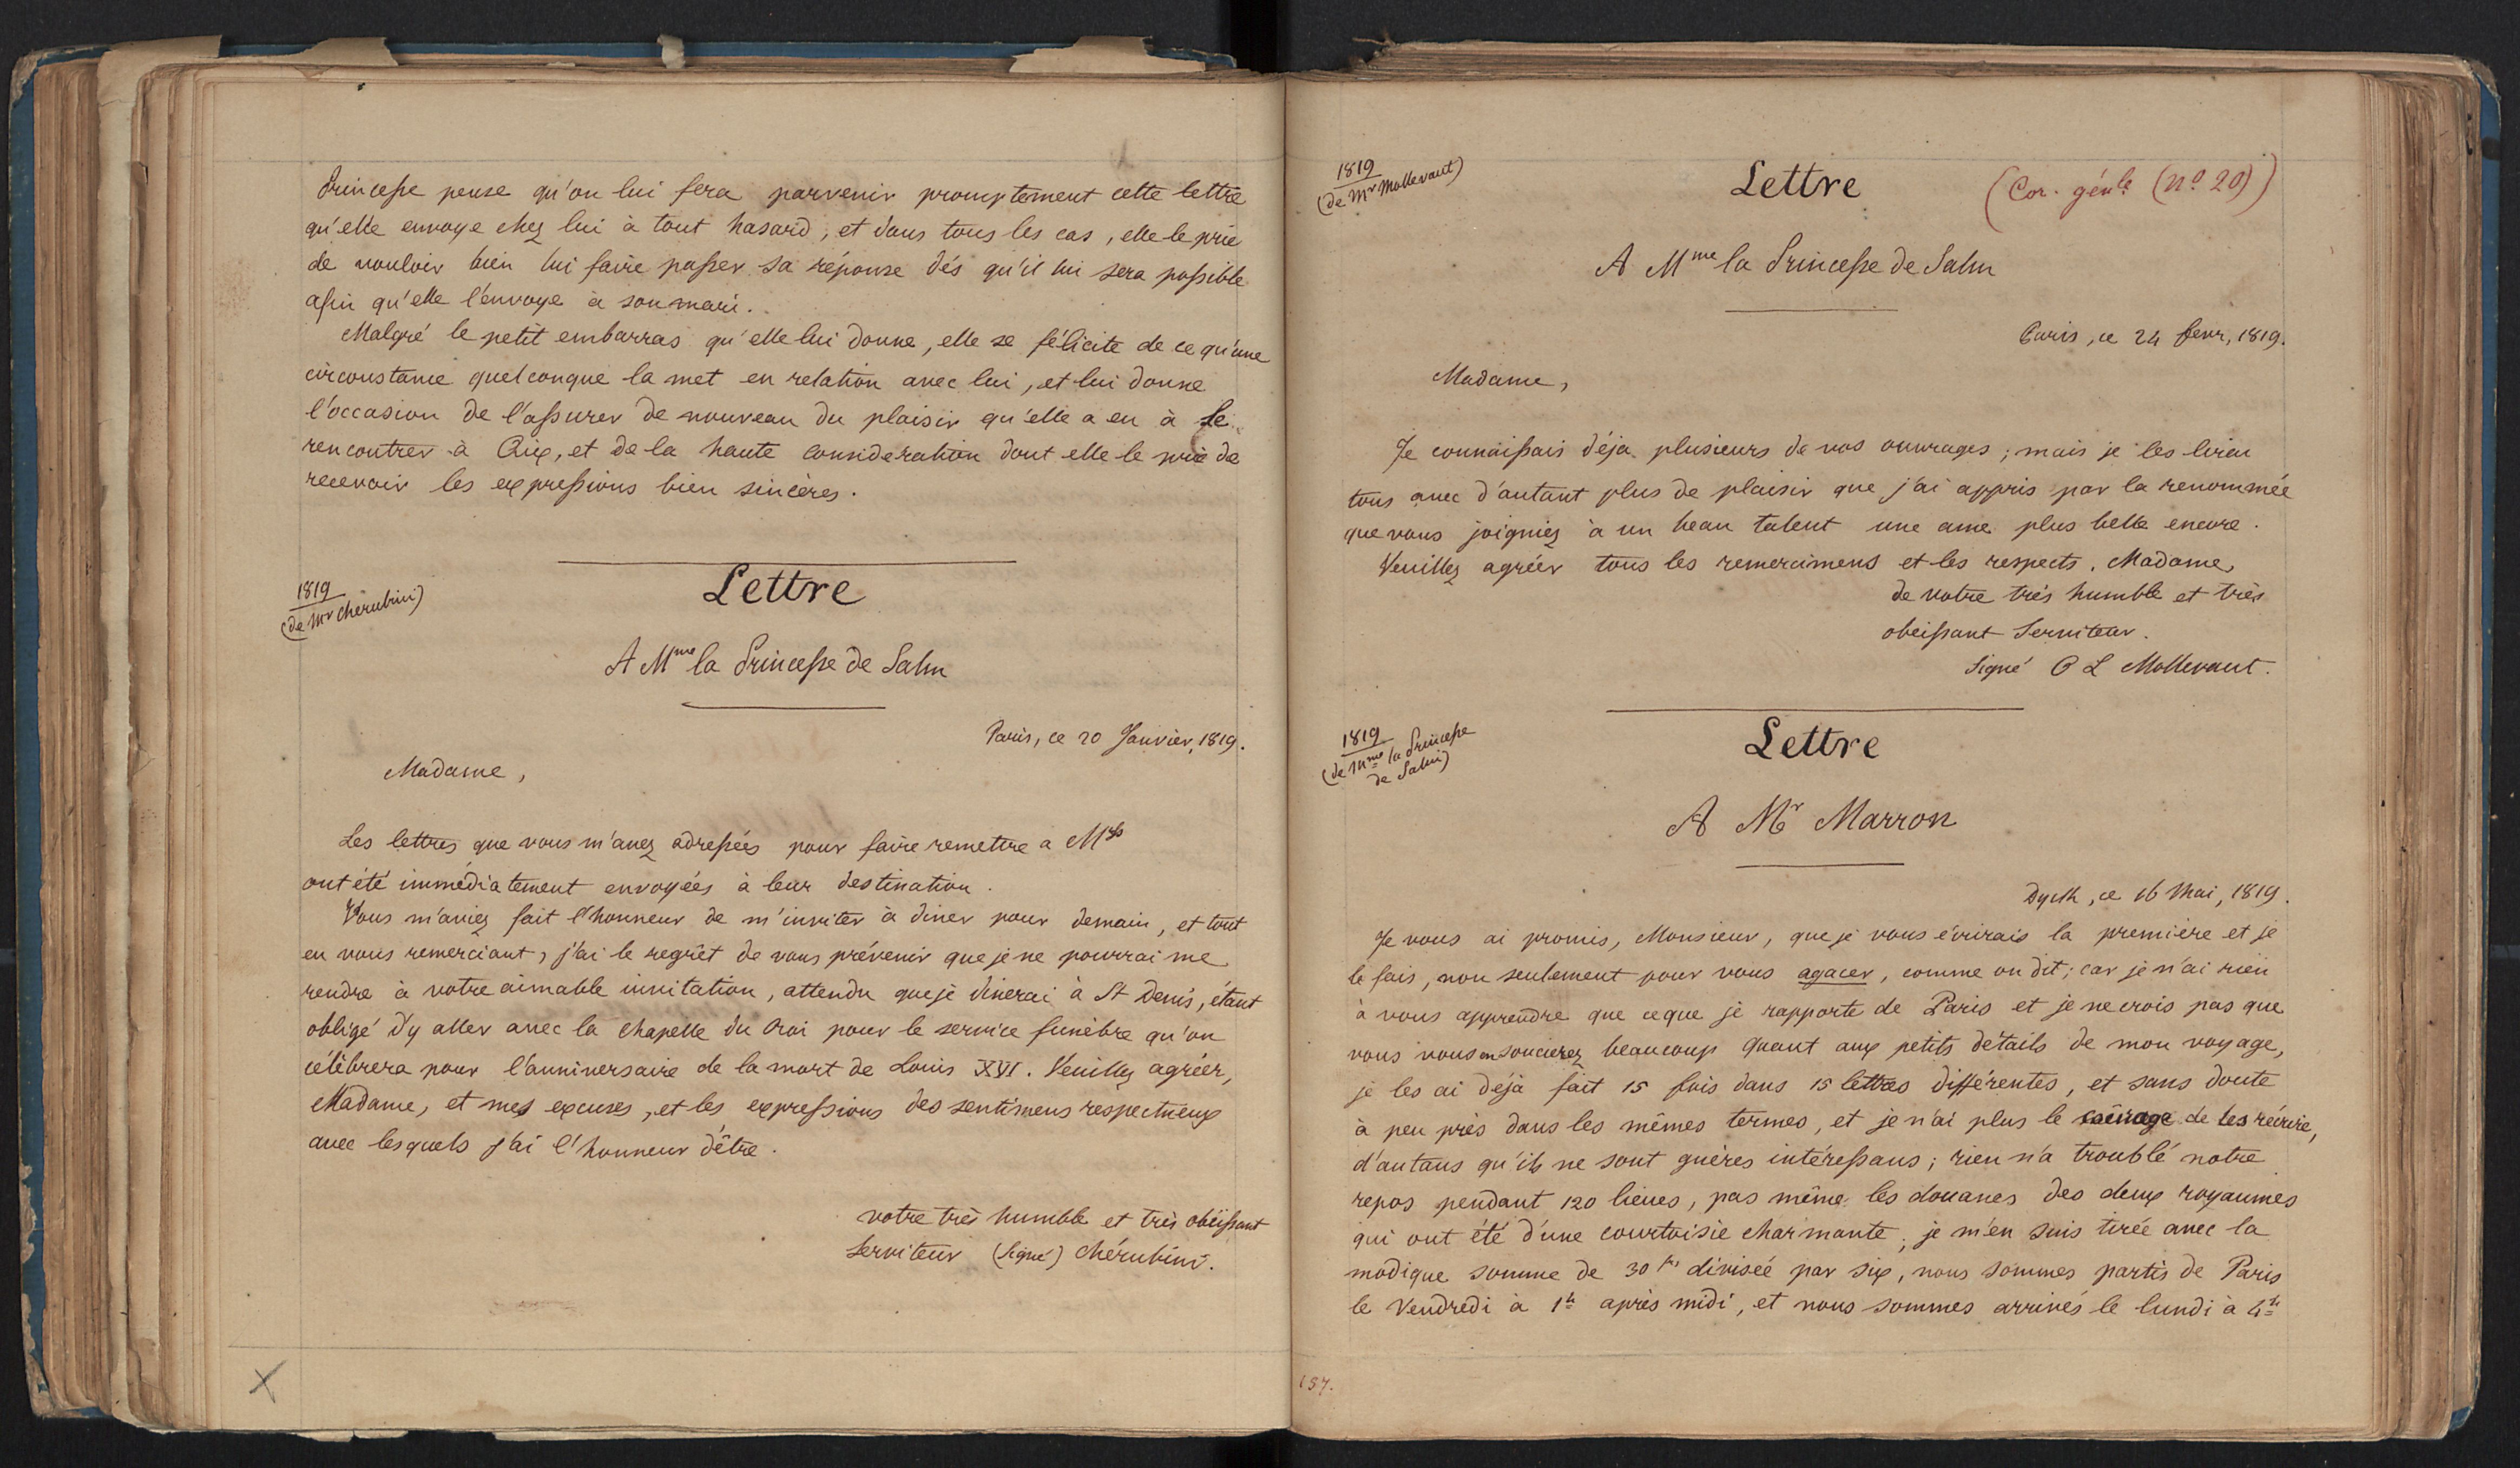 Princesse pense qu'on lui fera parvenir promptement cette lettre
qu'elle envoye chez lui à tout hasard, et dans tous les cas, elle le prie
de vouloir bien lui faire passer sa réponse dés qu'il lui sera possible
afin qu'elle l'envoye à son mari.
Malgré le petit embarras qu'elle lui donne, elle se félicite de ce qu'une
circonstance quelconque la met en relation avec lui, et lui donne
l'occasion de l'assurer de nouveau du plaisir qu'elle a eu à le
rencontrer à Aix, et de la haute consideration dont elle le prie de
recevoir les expressions bien sincères.
1819
(de Mr Chérubini)
Lettre
A Mme la Princesse de Salm
Paris, ce 20 Janvier, 1819.
Madame,
Les lettres que vous m'avez adressées pour faire remettre a Mrs
ont été immédiatement envoyées à leur destination.
Vous m'aviez fait l'honneur de m'inviter à diner pour demain, et tout
en vous remerciant, j'ai le regrêt de vous prévenir que je ne pourrai me
rendre à votre aimable invitation, attendu que je dinerai à St Denis, étant
obligé d'y aller avec la chapelle du Roi pour le service funèbre qu'on
célèbrera pour l'anniversaire de la mort de Louis XVI. Veuillez agréer,
Madame, et mes excuses, et les expressions des sentimens respectueux
avec lesquels j'ai l'honneur d'être.
votre très humble et très obéissant
Serviteur (signé) Chérubini.
1819
(de Mr Mollevaut)
Lettre
(Cor. génle (No 20))
A Mme la Princesse de Salm
Paris, ce 24 fevr, 1819.
Madame,
Je connaissais déja plusieurs de vos ouvrages; mais je les lirai
tous avec d'autant plus de plaisir que j'ai appris par la renommée
que vous joigniez à un beau talent une ame plus belle encore.
Veuillez agréer tous les remercimens et les respects, Madame,
de votre très humble et très
obeissant Serviteur.
Signé C L Mollevaut.
1819
(de Mme la Princesse
de Salm)
Lettre
A Mr Marron
Dyck, ce 16 Mai, 1819.
Je vous ai promis, Monsieur, que je vous écrirais la première et je
le fais, non seulement pour vous agacer, comme on dit; car je n'ai rien
à vous apprendre que ce que je rapporte de Paris et je ne crois pas que
vous vous en souciez beaucoup quant aux petits détails de mon voyage,
je les ai déjà fait 15 fois dans 15 lettres différentes, et sans doute
à peu près dans les mêmes termes, et je n'ai plus le courage de les récrire,
d'autans qu'ils ne sont guères intéressans; rien n'a troublé notre
repos pendant 120 lieues, pas même les douanes des deux royaumes
qui ont été d'une courtoisie charmante; je m'en suis tirée avec la
modique somme de 30 frs divisée par six, nous sommes partis de Paris
le Vendredi à 1h après midi, et nous sommes arrivés le lundi à 4h
157.